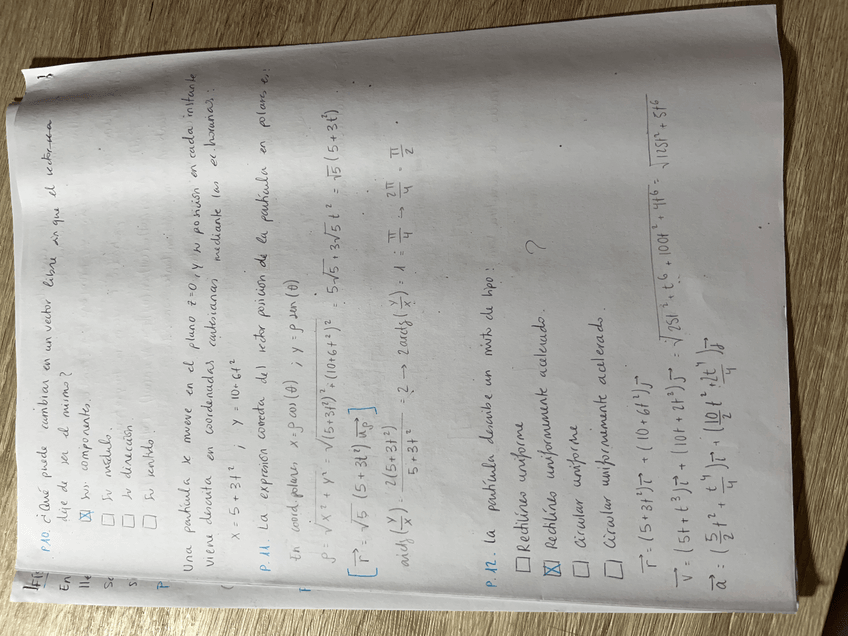 P.10. ¿Qué puede cambiar en un vector libre sin que el vector
deje de ser el mismo?
☒ Sus componentes.
☐ Su módulo.
☐ Su dirección
☐ Su sentido.
Una partícula se mueve en el plano z=0, y su posición en cada instante
viene descrita en coordenadas cartesianas mediante las ec. horarias:
x = 5 + 3t² ; y = 10 + 6t²
P.11. La expresión correcta del vector posición de la partícula en polares es:
En coord. polares x = ρ cos(θ) ; y = ρ sen(θ)
ρ = √(x² + y²) = √((5+3t²)² + (10+6t²)²) = 5√5 + 3√5 t² = √5 (5 + 3t²)
[r⃗ = √5 (5 + 3t²) u⃗ρ]
arctg(y/x) = 2(5+3t²)/(5+3t²) = 2 → 2 arctg(y/x) = 1 = π/4 → 2π/4 = π/2
P.12. La partícula describe un mvto de tipo:
☐ Rectilíneo uniforme
☒ Rectilíneo uniformemente acelerado. ?
☐ Circular uniforme
☐ Circular uniformemente acelerado.
r⃗ = (5+3t²) i⃗ + (10+6t²) j⃗
v⃗ = (5t + t³) i⃗ + (10t + 2t³) j⃗ = √(25t² + t⁶ + 100t² + 4t⁶) = √(125t² + 5t⁶)
a⃗ = (5/2 t² + t⁴/4) i⃗ + (10/2 t² + 2t⁴/4) j⃗